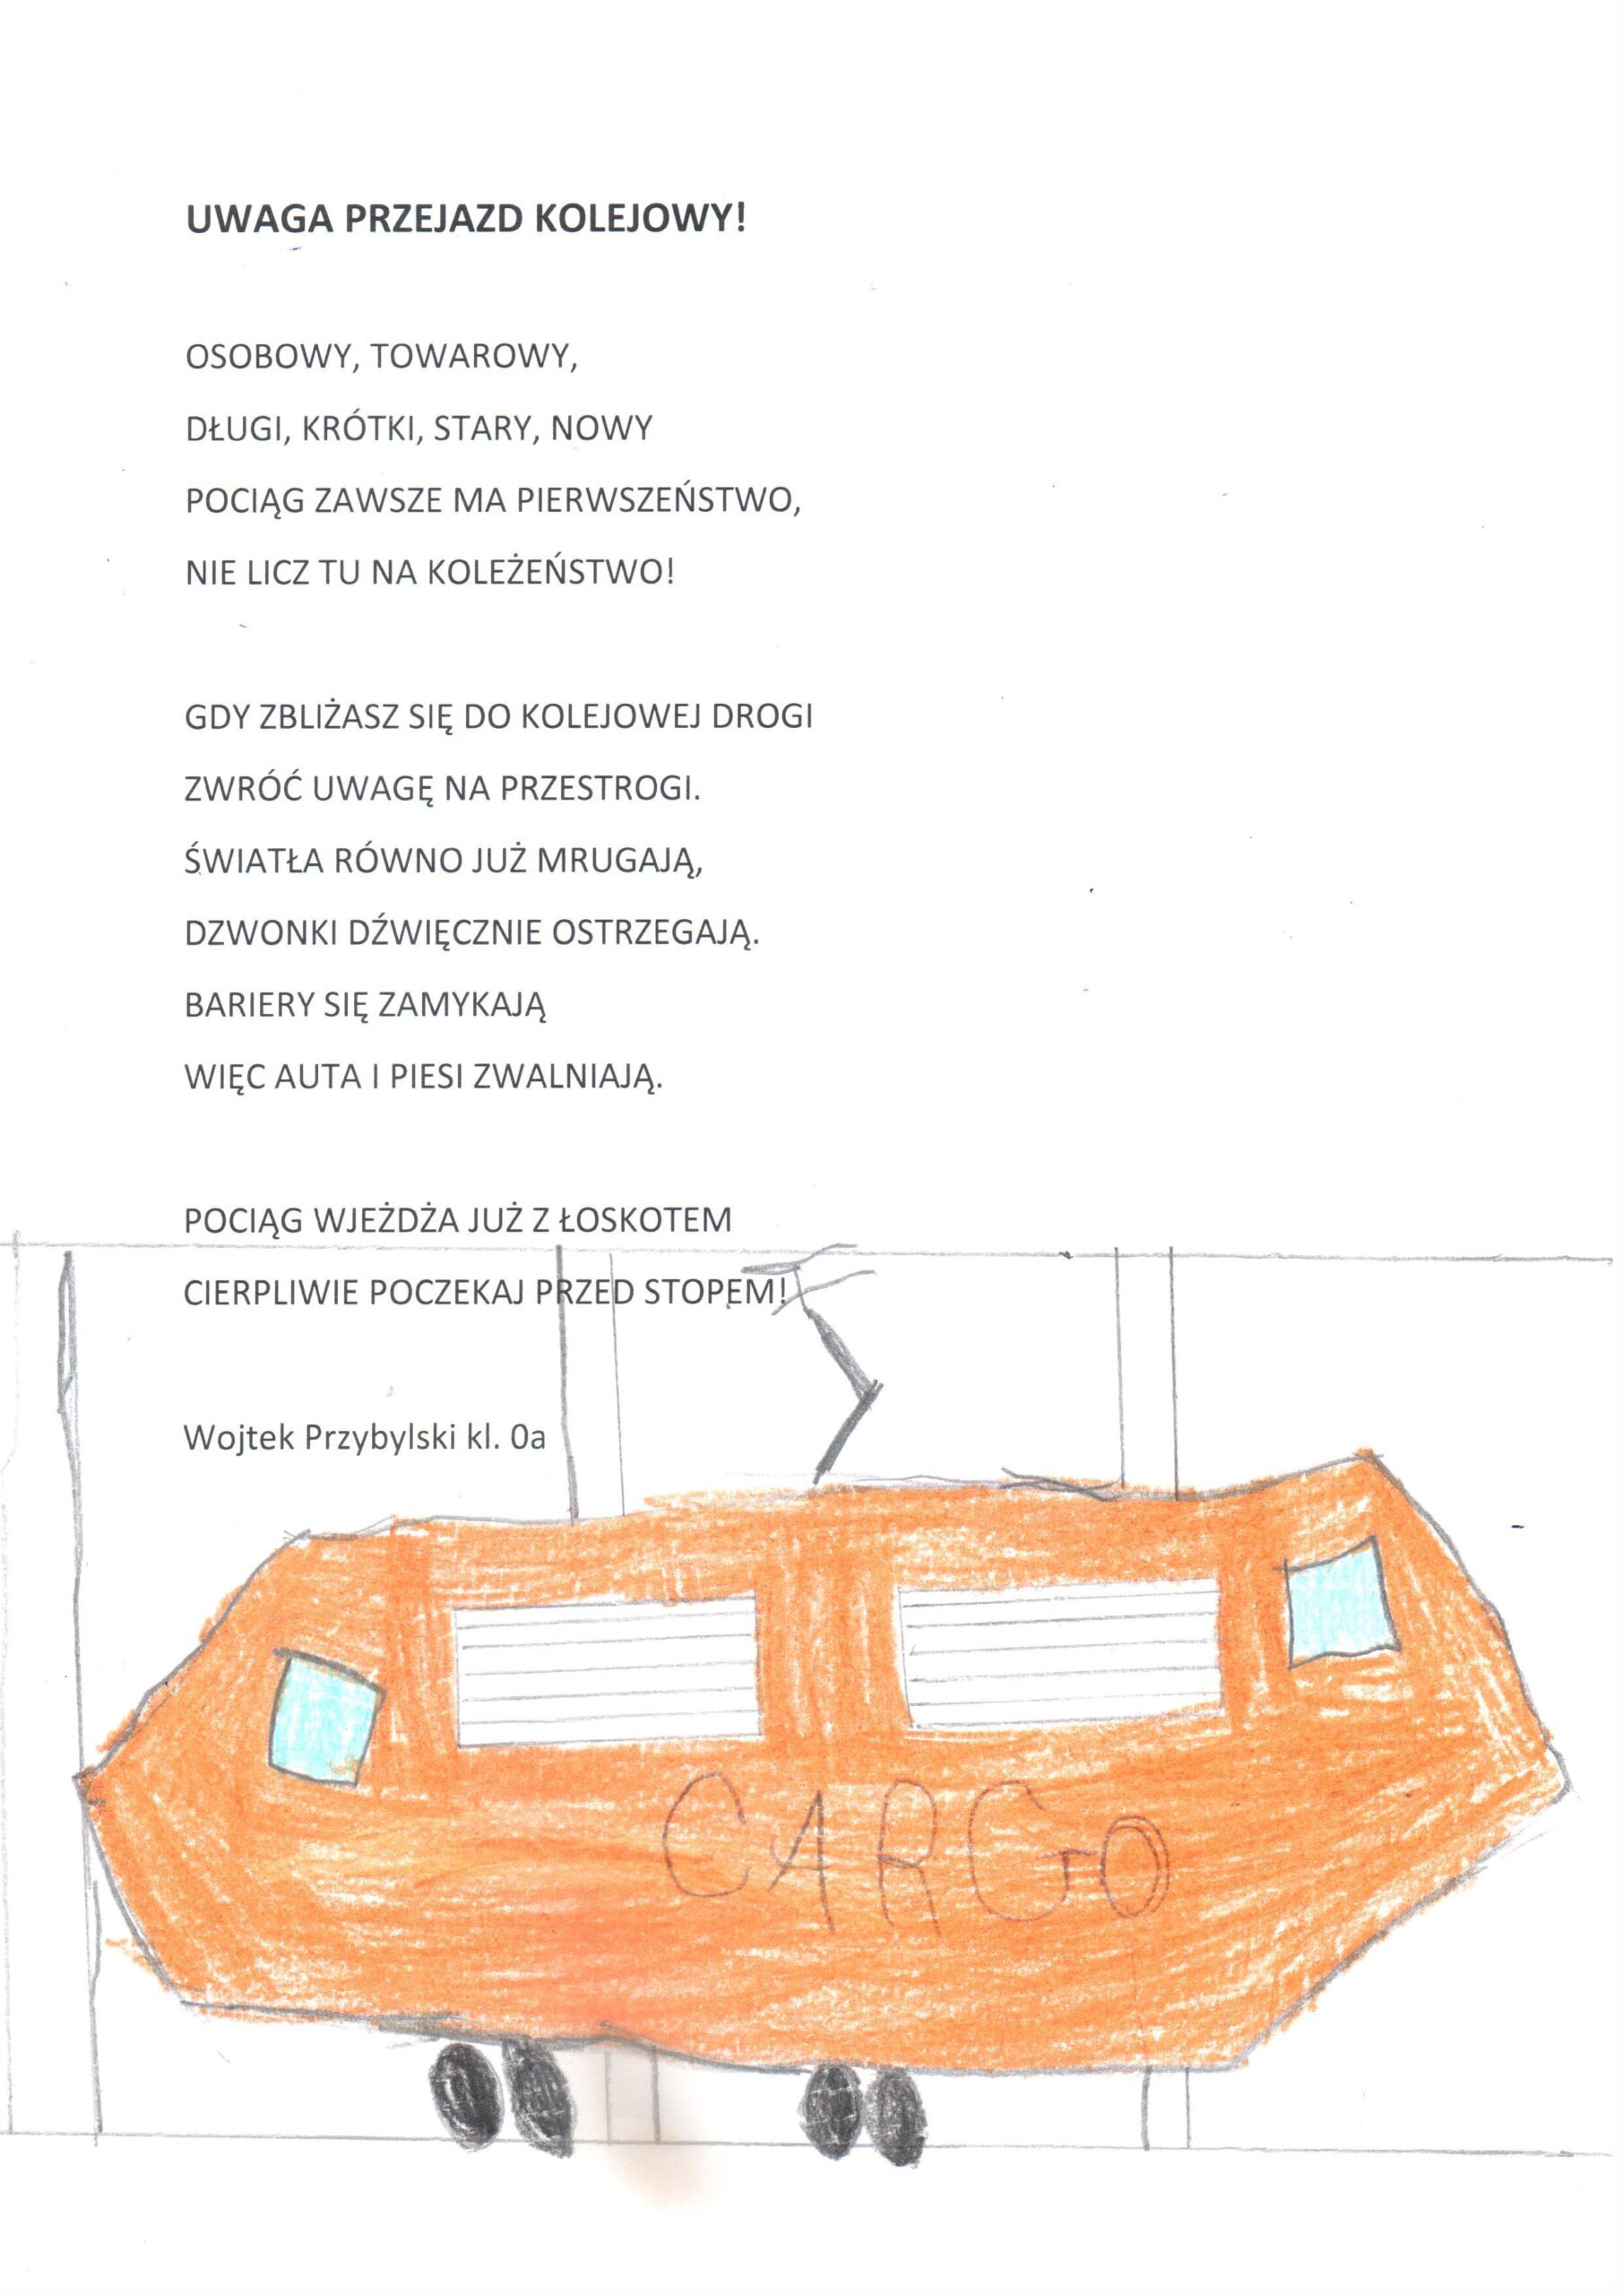 UWAGA PRZEJAZD KOLEJOWY!
OSOBOWY, TOWAROWY,
DŁUGI, KRÓTKI, STARY, NOWY
POCIĄG ZAWSZE MA PIERWSZEŃSTWO,
NIE LICZ TU NA KOLEŻEŃSTWO!
GDY ZBLIŻASZ SIĘ DO KOLEJOWEJ DROGI
ZWRÓĆ UWAGĘ NA PRZESTROGI.
ŚWIATŁA RÓWNO JUŻ MRUGAJĄ,
DZWONKI DŹWIĘCZNIE OSTRZEGAJĄ.
BARIERY SIĘ ZAMYKAJĄ
WIĘC AUTA I PIESI ZWALNIAJĄ.
POCIĄG WJEŻDŻA JUŻ Z ŁOSKOTEM
CIERPLIWIE POCZEKAJ PRZED STOPEM!
Wojtek Przybylski kl. 0a
CARGO